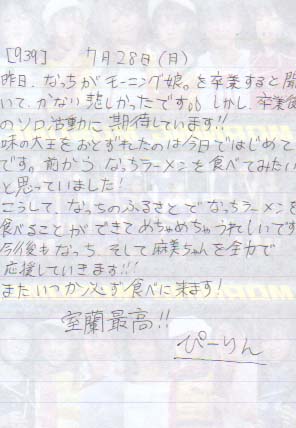 [939] 7月28日(月)
昨日、なっちがモーニング娘。を卒業すると聞
いて、かない悲しかったです。。しかし、卒業後
のソロ活動に期待しています!!
味の大王をおとずれたのは今日ではじめて
です。前からなっちラーメンを食べてみたい
と思っていました!
こうして、なっちのふるさとでなっちラーメンを
食べることができてめちゃめちゃうれしいです
今後もなっち、そして麻美ちゃんを全力で
応援していきます!!!
またいつか必ず食べに来ます!
室蘭最高!!
ぴーりん